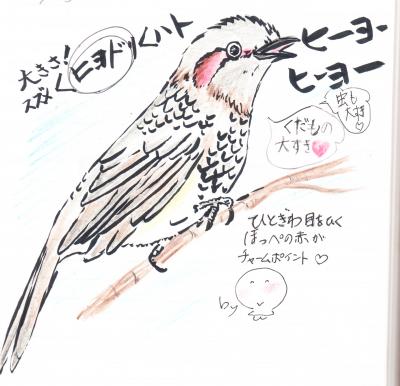 大きさ!
スズメ<ヒヨドリ<ハト
ヒーヨー
ヒーヨー
虫も
大好き♡
くだもの
大すき♥
ひときわ目をひく
ほっぺの赤が
チャームポイント♡
by